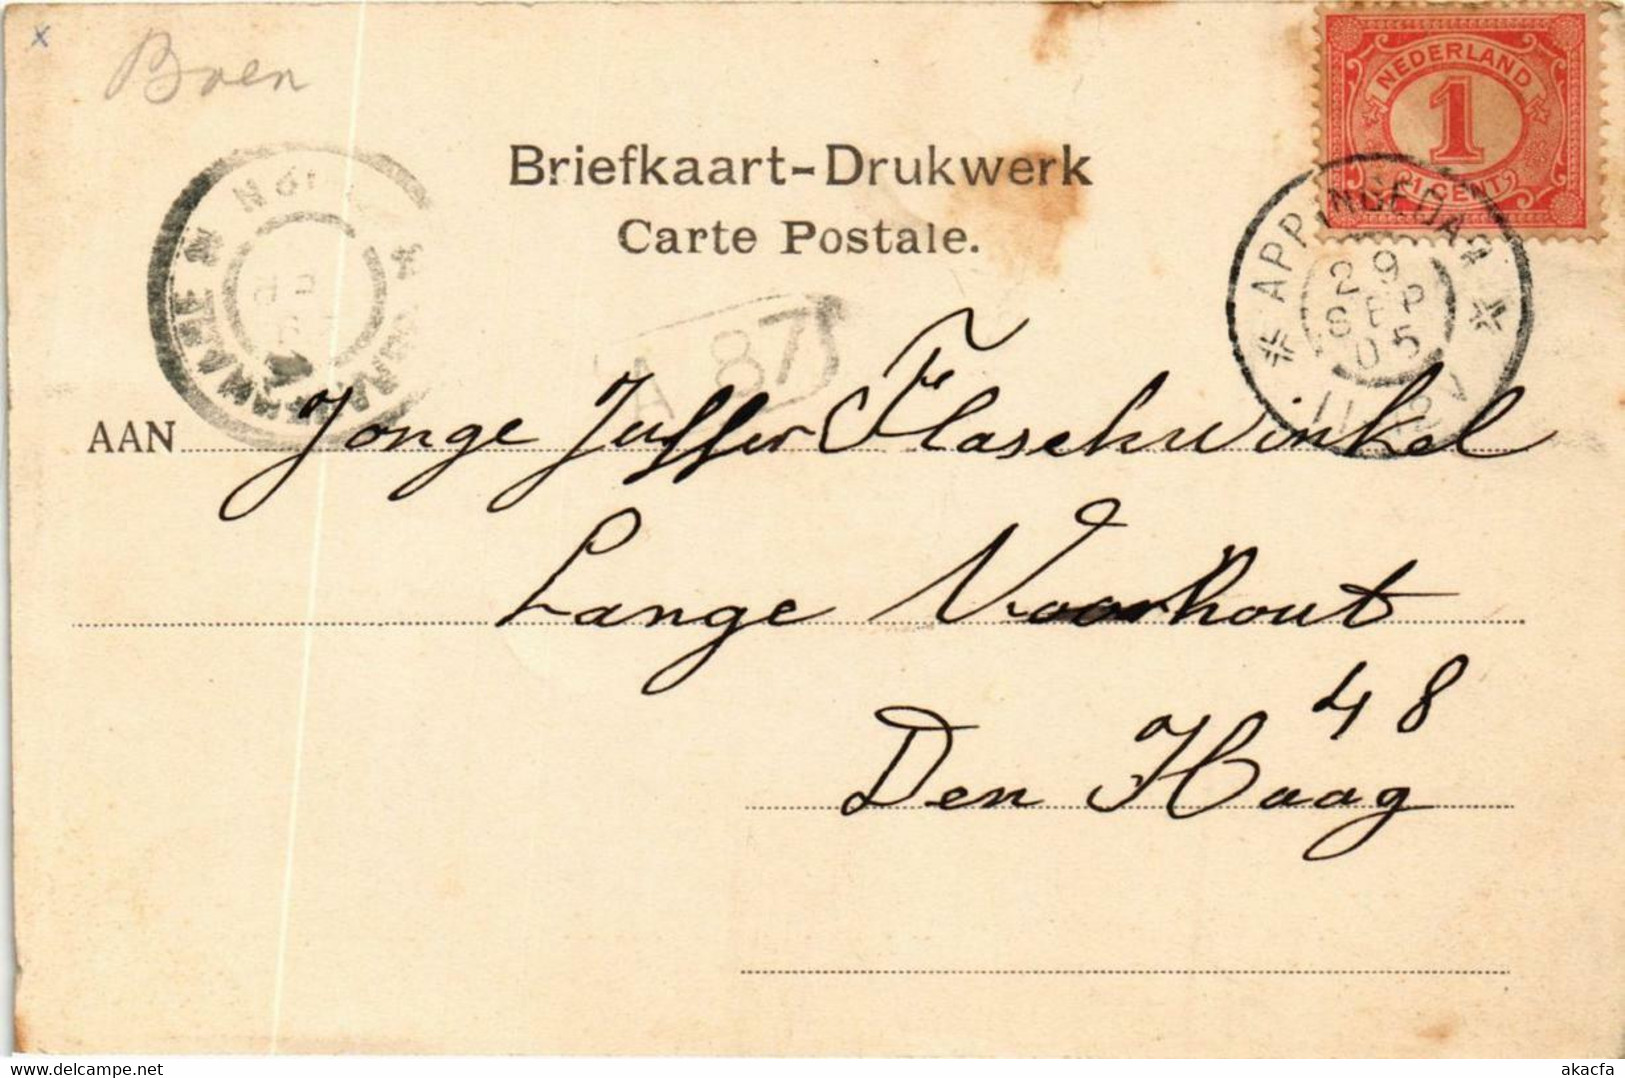 x
Boen
NEDERLAND
1
1 CENT
Briefkaart-Drukwerk
Carte Postale.
APPINGEDAM
29
SEP
05
A 87
AAN Jonge Juffer Flaschwinkel
Lange Voorhout
48
Den Haag
akacfa
www.delcampe.net